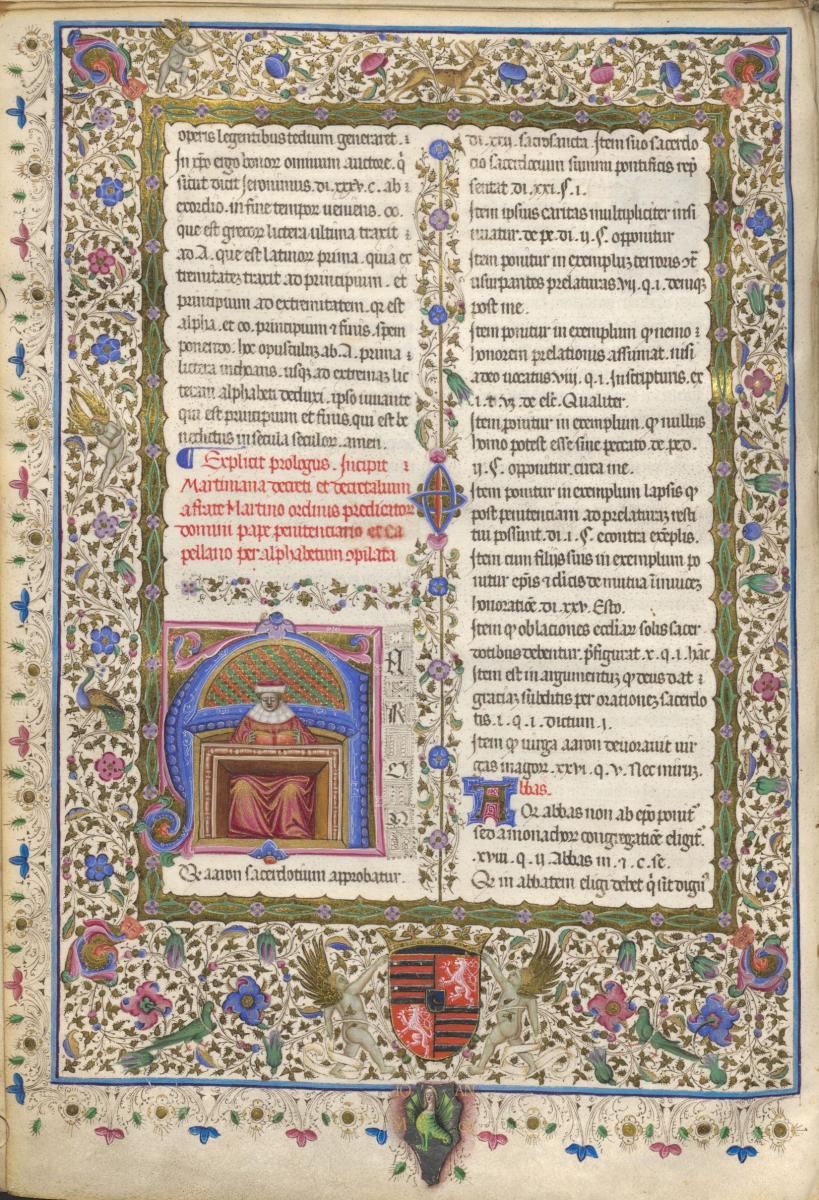 operis legentibus tedium generaret.
In xpo ergo honor omnium auctore. q
sicut dicit Jeronimus. di. xxxv. c. ab
exordio. in fine tempor veniens. oo.
que est grecor littera ultima traxit
ad A. que est latinor prima. quia ex
tremitatez traxit ad principium. et
principium ad extremitatem. qr est
alpha. et oo. principium et finis. spem
ponendo. hoc opusculuz ab. A. prima
littera inchoans. usqz ad extremaz lit
teram alphabeti deduxi. ipso iuvante
qui est principium et finis. qui est be
nedictus in secula seculor. amen.
Explicit prologus. Incipit
Martiniana decreti et decretalium
a fratre Martino ordinis predicator
domini pape penitenciario et ca
pellano per alphabetum opilata
A
R
O
N
Qr aaron sacerdotium approbatur.
di. xxii. sacrosancta. Item suo sacerdo
cio sacerdocium summi pontificis rep
sentat. di. xxi. §. i.
Item ipsius caritas multipliciter insi
nuatur. de pe. di. ii. §. opponitur
Item ponitur in exempluz terroris
usurpantes prelaturas. vii. q. i. deniqz
post me.
Item ponitur in exemplum q nemo
honorem prelationis assumat. nisi
a deo vocatus viii. q. i. In scripturis. ex
i. t. vz. de elc. Qualiter.
Item ponitur in exemplum. q nullus
homo potest esse sine peccato. de pe. d.
ii. §. opponitur. circa me.
Item ponitur in exemplum lapsis q
post penitenciam ad prelaturaz resti
tui possunt. di. l. §. econtra exeplis.
Item cum filijs suis in exemplum po
nitur epis et clicis de mutua
honoratioe. di. xxv. Esto.
Item q oblationes eccliar solis sacer
dotibus debentur. pfigurat. x. q. i. hac
Item est in argumentuz q deus dat
graciaz subditis per orationez sacerdo
tis. i. q. i. dictum. i.
Item q virga aaron devoravit vir
gas magor. xxvi. q. v. Nec mirum.
Abbas.
Qr abbas non ab epo ponit
sed a monachor congregatioe eligit.
xviii. q. ii Abbas in. i. c. se.
Qr in abbatem eligi debet q sit dign